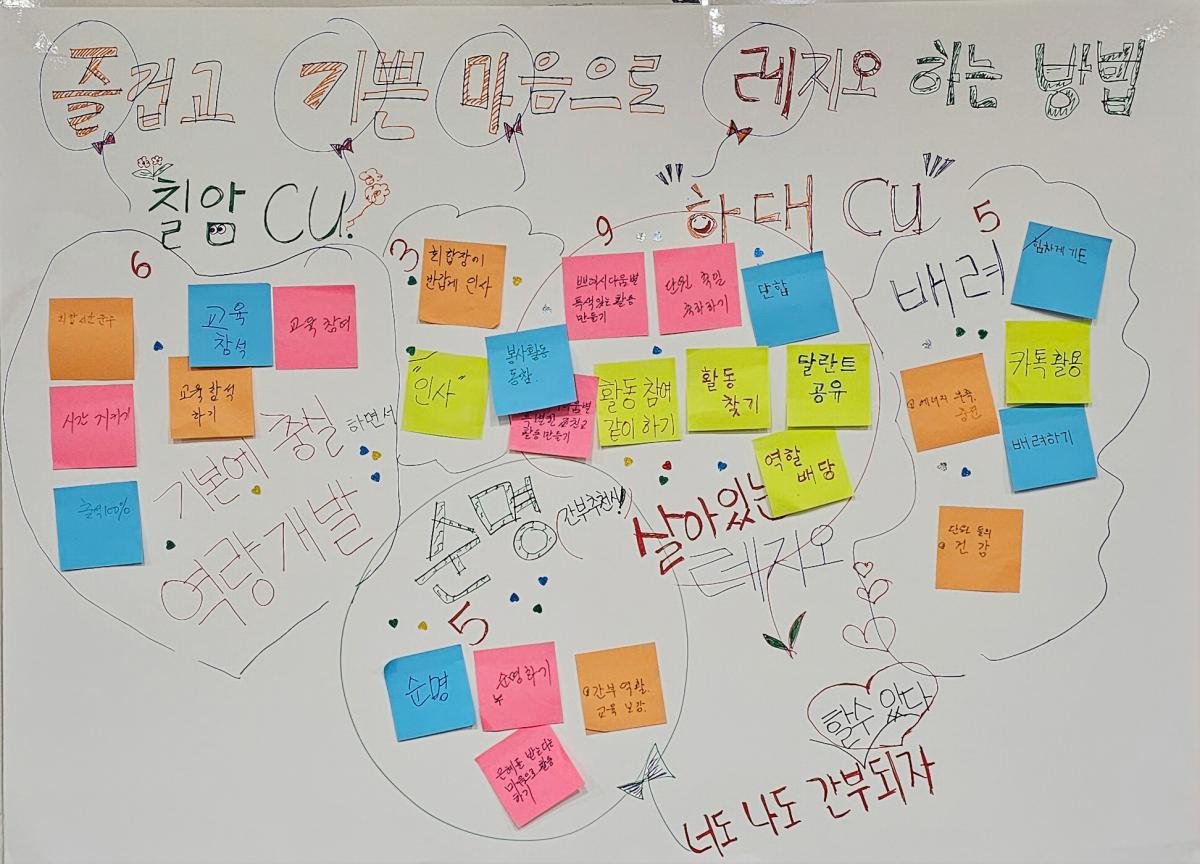 즐겁고 기쁜 마음으로 레지오 하는 방법
칠암 CU.
하대 CU
6
회합시간준수
교육
참석
교육 참여
시간 지키기
교육 참석
하기
출석 100%
기본에 충실 하면서
역량개발
3
회합장이
반갑게 인사
"인사"
9
쁘레시디움별
특색있는 활동
만들기
단원 축일
축하하기
단합
봉사활동
동참.
활동 만들기
활동 참여
같이 하기
활동
찾기
달란트
공유
역할
배당
살아있는
레지오
5
배려
힘차게 기도
카톡활용
에너지 부족,
충전
배려하기
단원 들의
건강
순명
간부추천시!
5
순명
순명하기
간부 역할.
교육 보강.
은혜를 받는다는
마음으로 활동
하기
할수 있다
너도 나도 간부되자